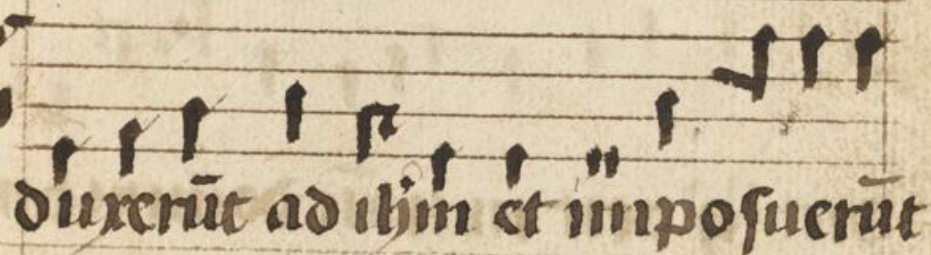 duxerūt ad ihm et imposuerūt